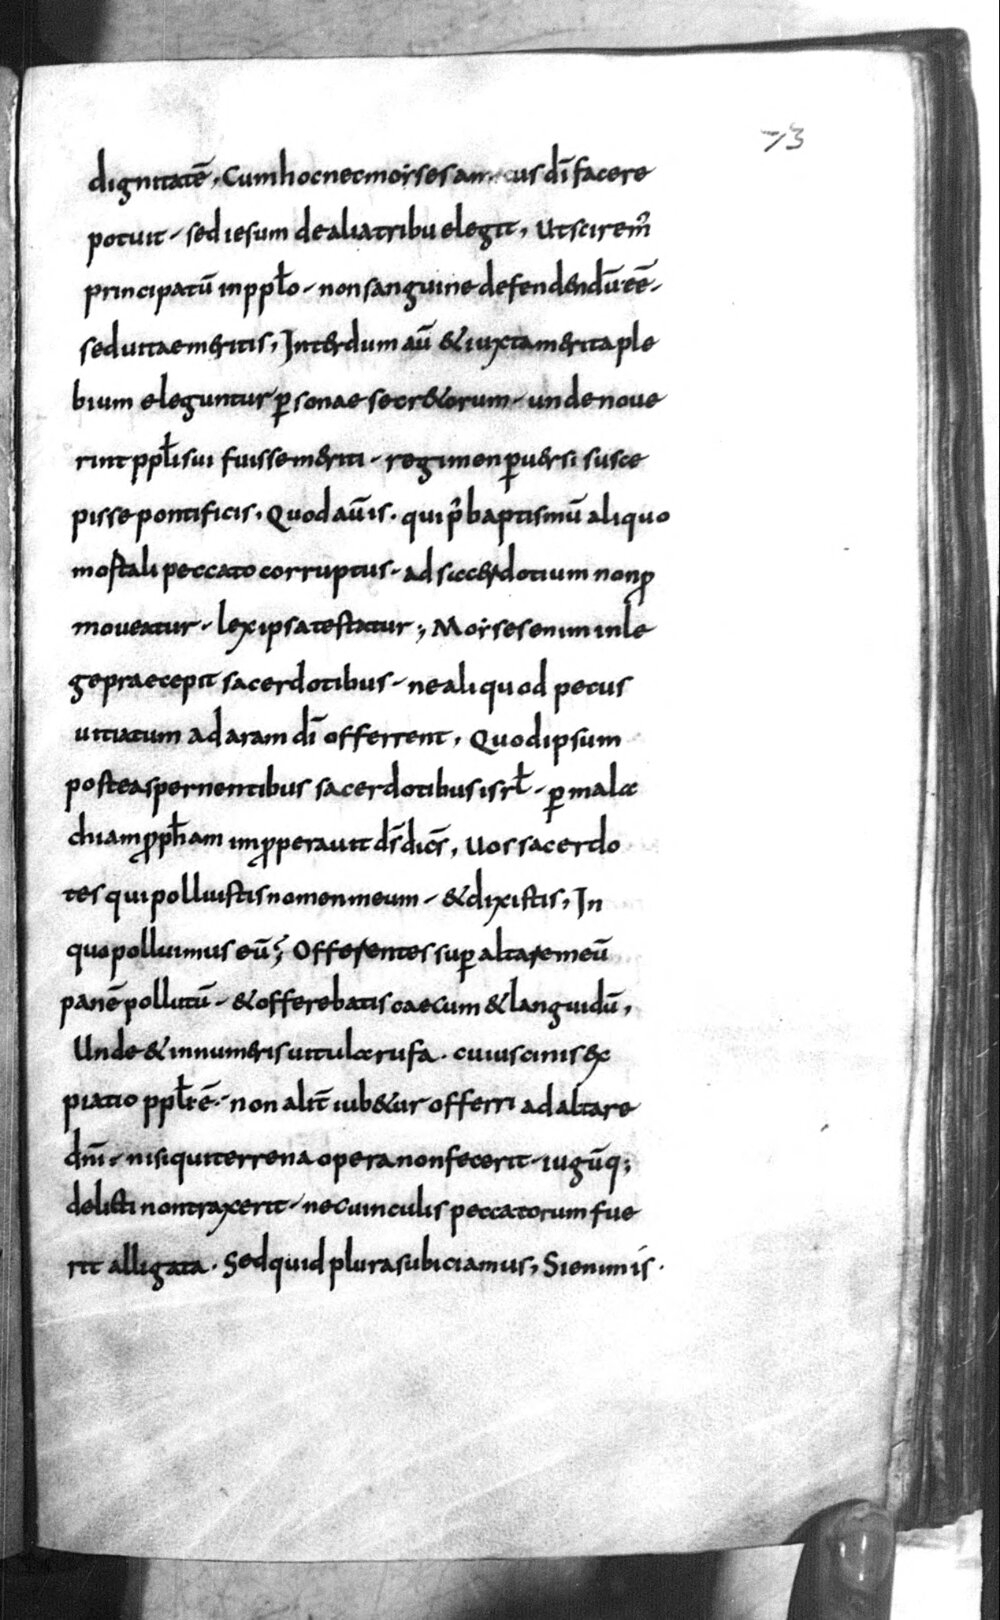 73
dignitatē, Cum hoc nec moyses amicus dī facere
potuit, sed iesum de alia tribu elegit, Ut sciremꝰ
principatū in pplo, non sanguine defendendū eē,
sed uitae meritis, Interdum aū & iuxta merita ple
bium eleguntur ꝑsonae sacr&orum, unde noue
rint ppli sui fuisse meriti, regimen ꝑuersi susce
pisse pontificis, Quod aū is, qui p̾ baptismū aliquo
mortali peccato corruptus, ad sacerdotium non ꝓ
moueatur, lex ipsa testatur; Moyses enim in le
ge praecepit sacerdotibus, ne aliquod pecus
uitiatum ad aram dī offerrent, Quod ipsum
postea spernentibus sacerdotibus isrł, ꝑ mala
chiam ꝓpham imꝓperauit dꞩ dicēs, Uos sacerdo
tes qui polluistis nomen meum, & dixistis, In
quo polluimus eū; Offerentes suꝑ altare meū
panē pollutū, & offerebatis caecum & languidū,
Unde & in numeris uitula rufa, cuius cinis ex
piatio ppli ē, non alit̄ iub&ur offerri ad altare
dn̄i, nisi qui terrena opera non fecerit, iugūq;
delicti non traxerit, nec uinculis peccatorum fue
rit alligata. Sed quid plura subiciamus, Si enim is.